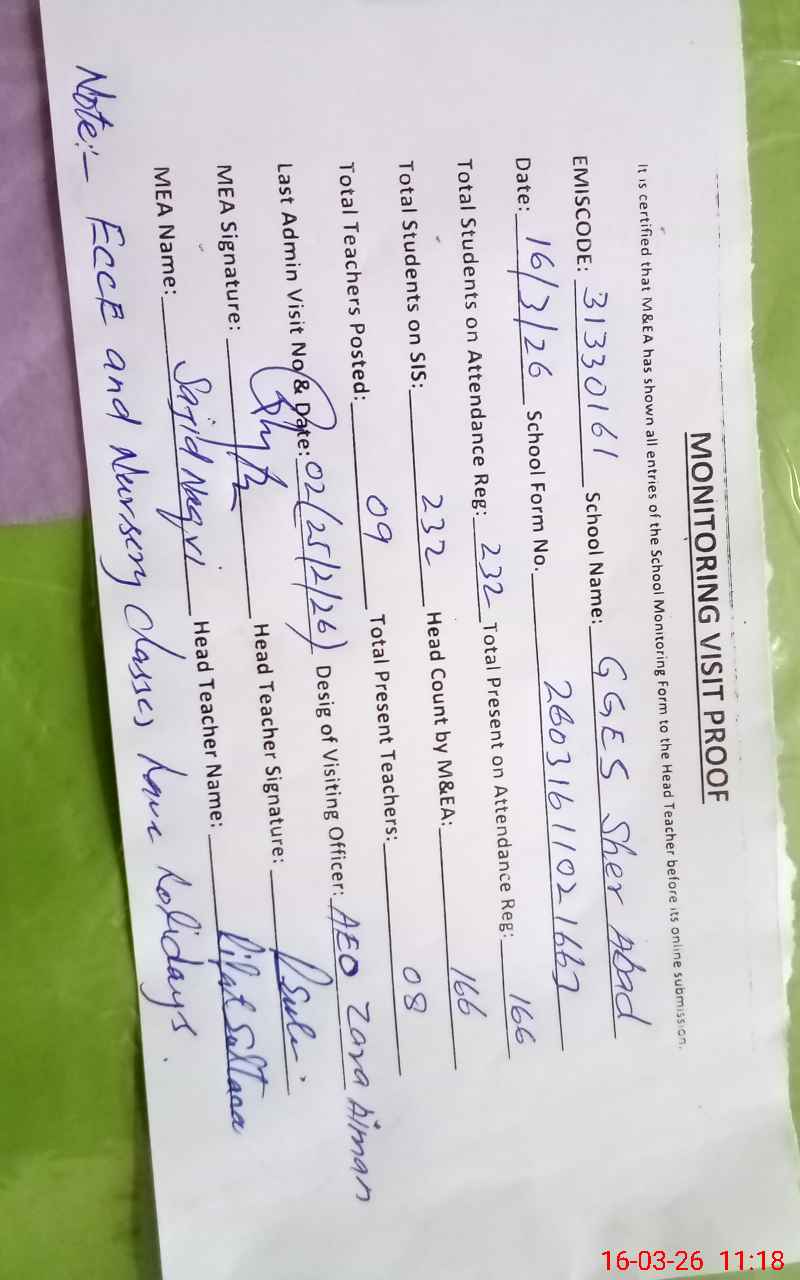 MONITORING VISIT PROOF
It is certified that M&EA has shown all entries of the School Monitoring Form to the Head Teacher before its online submission.
EMISCODE: 31330161 School Name: GGES Sher Abad
Date: 16/3/26 School Form No. 2603161102166
Total Students on Attendance Reg: 232 Total Present on Attendance Reg: 166
Total Students on SIS: 232 Head Count by M&EA: 166
Total Teachers Posted: 09 Total Present Teachers: 08
Last Admin Visit No & Date: 02/25/2/26) Desig of Visiting Officer: AEO Zara Aiman
MEA Signature: Head Teacher Signature:
MEA Name: Sajid Naqvi Head Teacher Name: Sultana
Note:- ECCE and Nursery classes have holidays.
16-03-26 11:18